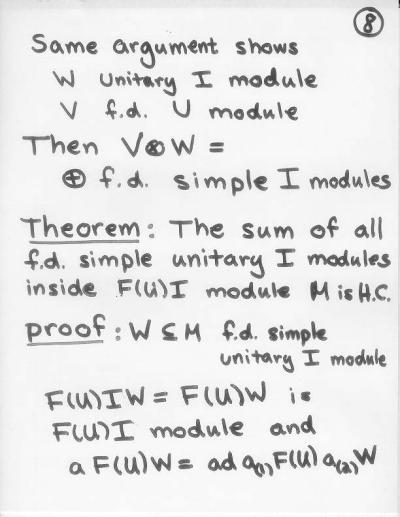 8
Same argument shows
W unitary I module
V f.d. U module
Then V⊗W =
⊕ f.d. simple I modules
Theorem: The sum of all
f.d. simple unitary I modules
inside F(U)I module M is H.C.
proof: W ⊆ M f.d. simple
unitary I module
F(U)IW = F(U)W is
F(U)I module and
a F(U)W = ad a₍₁₎F(U) a₍₂₎W